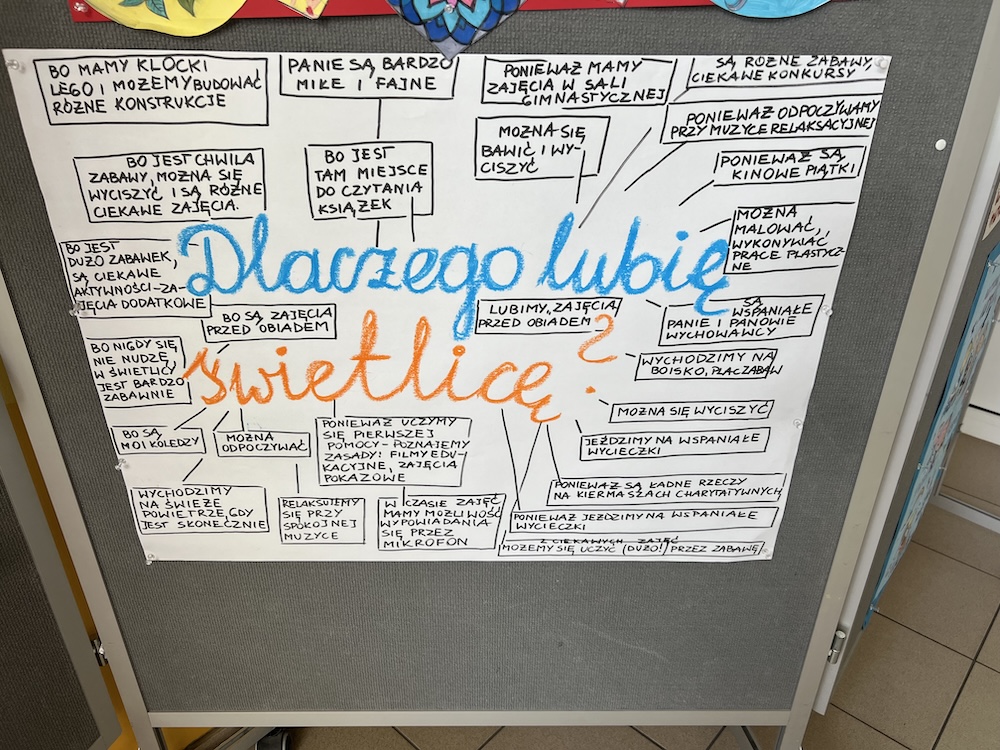 BO MAMY KLOCKI
LEGO I MOŻEMY BUDOWAĆ
RÓŻNE KONSTRUKCJE
PANIE SĄ BARDZO
MIŁE I FAJNE
PONIEWAŻ MAMY
ZAJĘCIA W SALI
GIMNASTYCZNEJ
SĄ RÓŻNE ZABAWY,
CIEKAWE KONKURSY
PONIEWAŻ ODPOCZYWAMY
PRZY MUZYCE RELAKSACYJNEJ
MOŻNA SIĘ
BAWIĆ I WY-
CISZYĆ
BO JEST CHWILA
ZABAWY, MOŻNA SIĘ
WYCISZYĆ I SĄ RÓŻNE
CIEKAWE ZAJĘCIA.
BO JEST
TAM MIEJSCE
DO CZYTANIA
KSIĄŻEK
PONIEWAŻ SĄ
KINOWE PIĄTKI
MOŻNA
MALOWAĆ,
WYKONYWAĆ
PRACE PLASTYCZ-
NE
BO JEST
DUŻO ZABAWEK,
SĄ CIEKAWE
AKTYWNOŚCI-ZA-
JĘCIA DODATKOWE
Dlaczego lubię
świetlicę?
BO SĄ ZAJĘCIA
PRZED OBIADEM
LUBIMY „ZAJĘCIA
PRZED OBIADEM"
SĄ
WSPANIAŁE
PANIE I PANOWIE
WYCHOWAWCY
BO NIGDY SIĘ
NIE NUDZĘ,
W ŚWIETLICY
JEST BARDZO
ZABAWNIE
WYCHODZIMY NA
BOISKO, PLAC ZABAW
MOŻNA SIĘ WYCISZYĆ
BO SĄ
MOI KOLEDZY
MOŻNA
ODPOCZYWAĆ
PONIEWAŻ UCZYMY
SIĘ PIERWSZEJ
POMOCY-POZNAJEMY
ZASADY: FILMY EDU-
KACYJNE, ZAJĘCIA
POKAZOWE
JEŹDZIMY NA WSPANIAŁE
WYCIECZKI
PONIEWAŻ SĄ ŁADNE RZECZY
NA KIERMASZACH CHARYTATYWNYCH
WYCHODZIMY
NA ŚWIEŻE
POWIETRZE, GDY
JEST SŁONECZNIE
RELAKSUJEMY
SIĘ PRZY
SPOKOJNEJ
MUZYCE
W CZASIE ZAJĘĆ
MAMY MOŻLIWOŚĆ
WYPOWIADANIA
SIĘ PRZEZ
MIKROFON
PONIEWAŻ JEŹDZIMY NA WSPANIAŁE
WYCIECZKI
Z CIEKAWYCH ZAJĘĆ
MOŻEMY SIĘ UCZYĆ (DUŻO!) PRZEZ ZABAWĘ